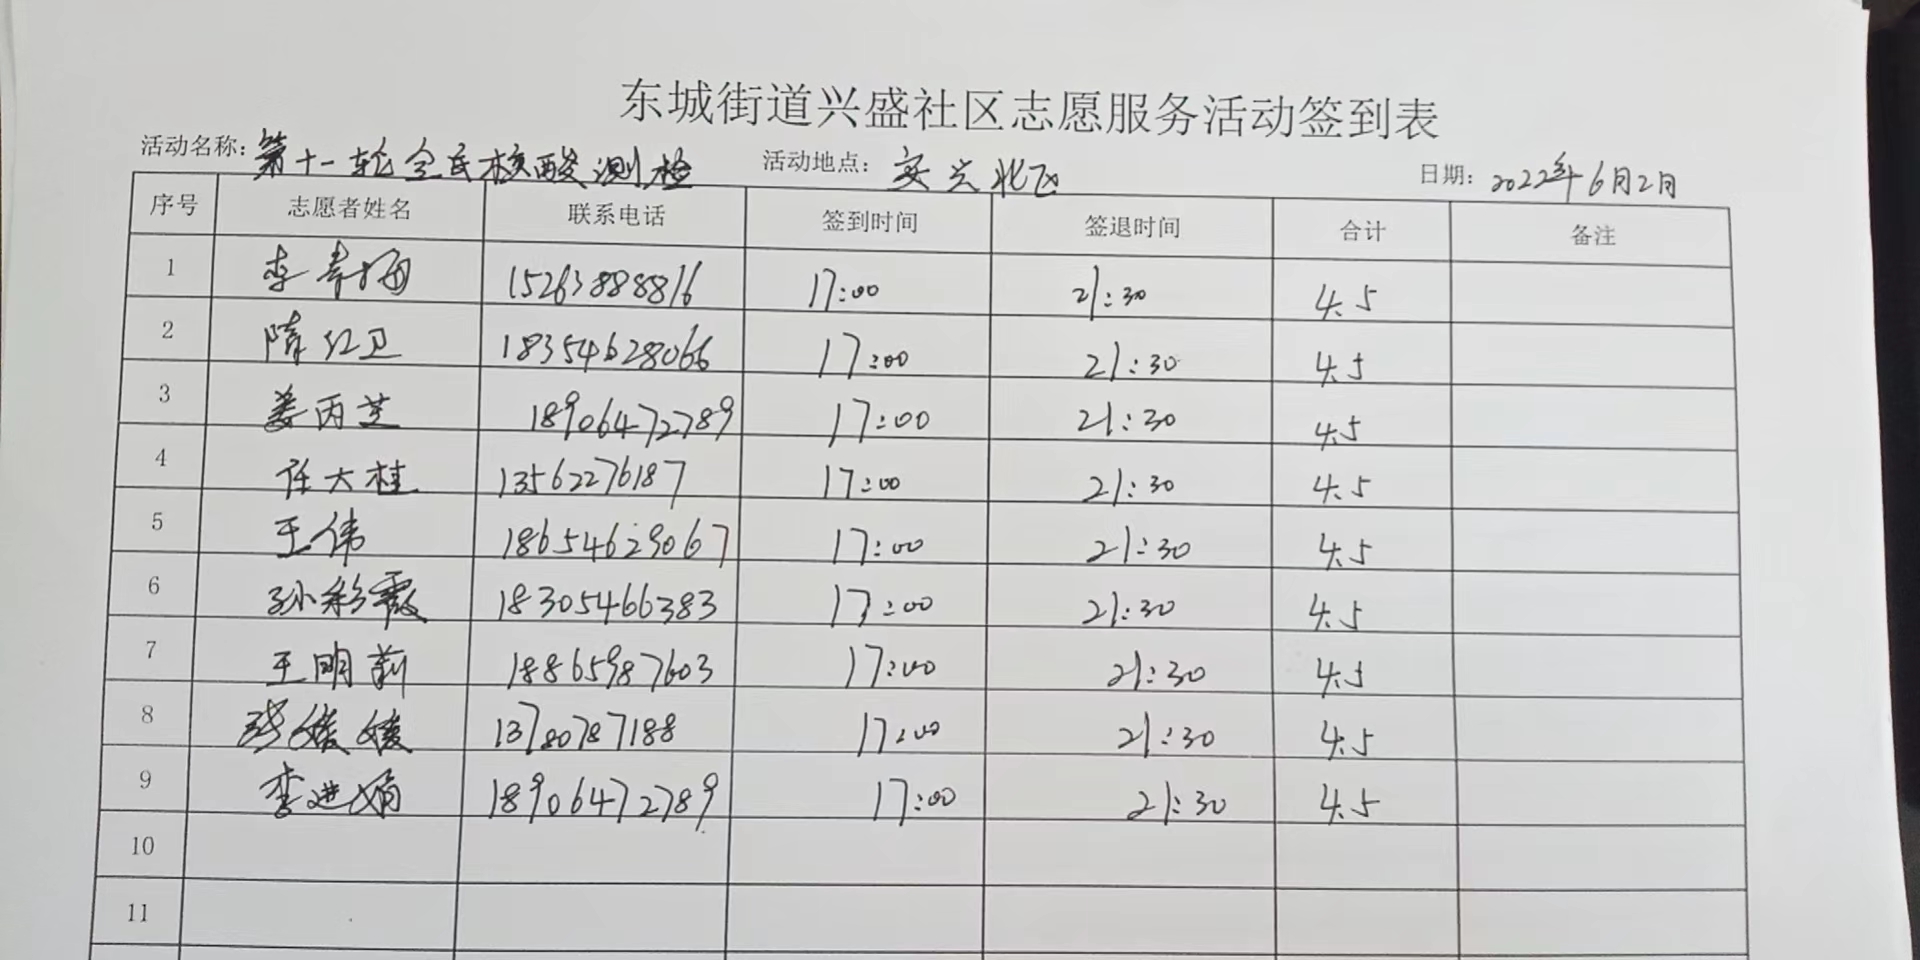 东城街道兴盛社区志愿服务活动签到表
活动名称: 第十一轮全民核酸测检 活动地点: 安兴北区 日期: 2022年6月2日
序号 志愿者姓名 联系电话 签到时间 签退时间 合计 备注
1 李青梅 15263888816 17:00 21:30 4.5
2 隋红卫 18354628066 17:00 21:30 4.5
3 姜丙芝 18906472789 17:00 21:30 4.5
4 任大桂 13562276187 17:00 21:30 4.5
5 王伟 18654629067 17:00 21:30 4.5
6 孙彩霞 18305466383 17:00 21:30 4.5
7 王明莉 18865987603 17:00 21:30 4.5
8 张媛媛 13780787188 17:00 21:30 4.5
9 李进娟 18906472789 17:00 21:30 4.5
10
11